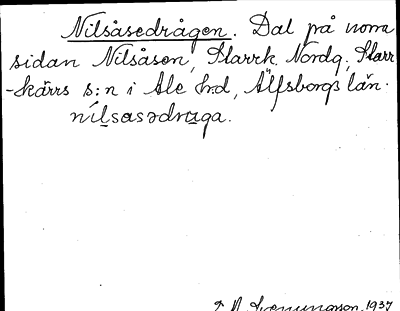 Nilsåsedrågen. Dal på norra
sidan Nilsåsen, Starrk. Nordg., Starr
-kärrs s:n i Ale hrd, Älfsborgs län.
nilsasədruga.
1937